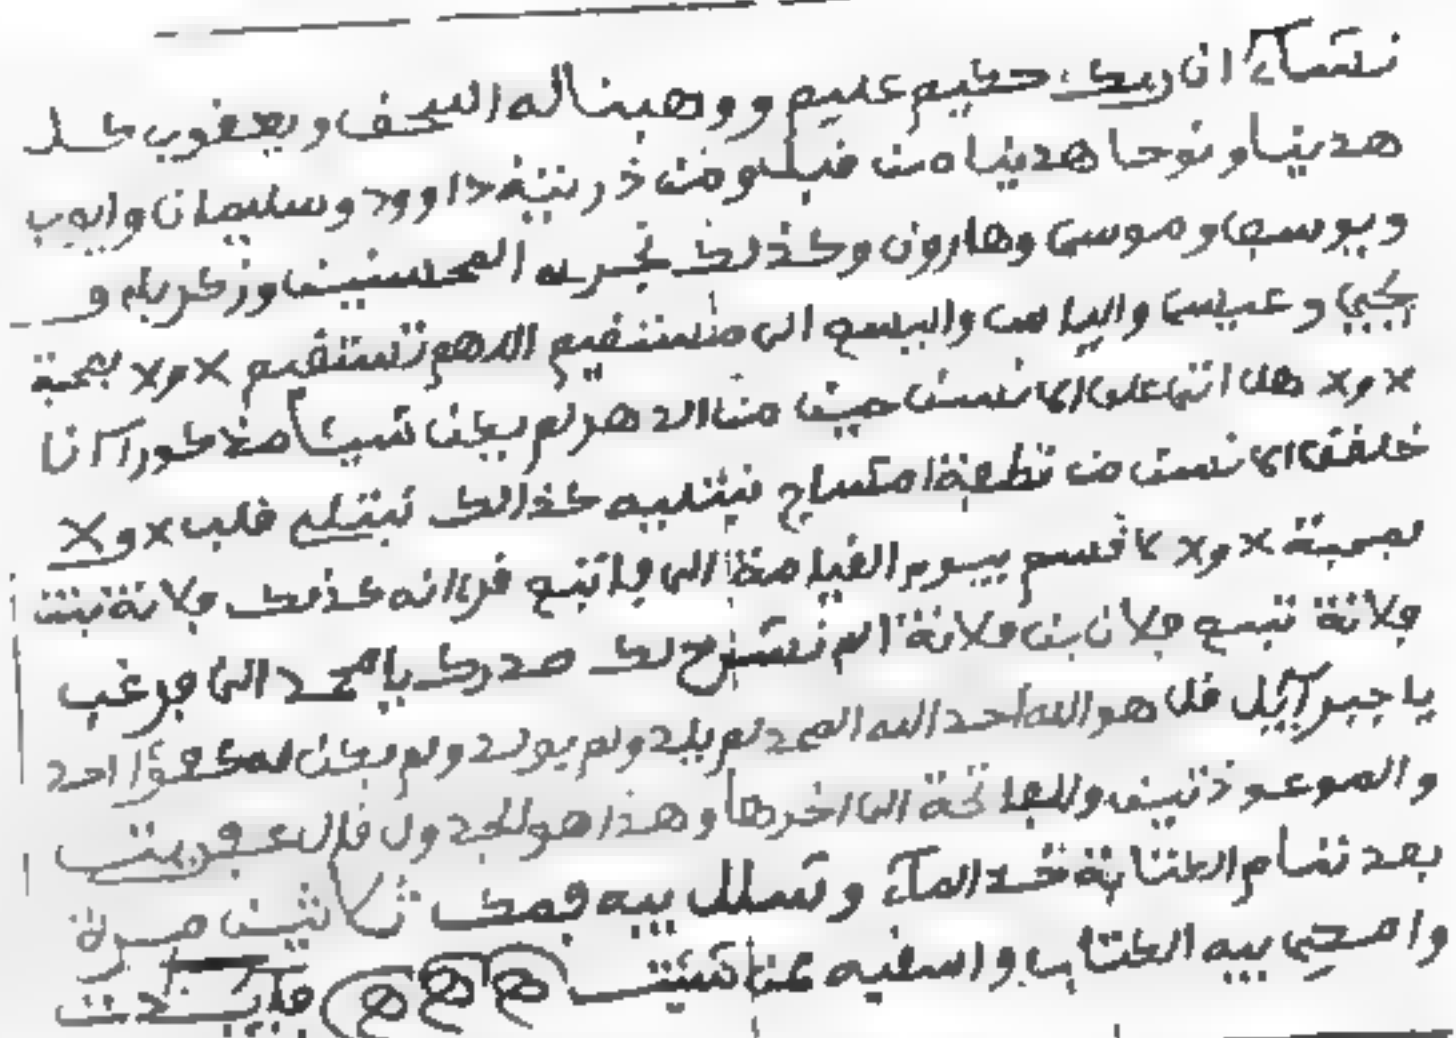 نشآء ان ربك حكيم عليم ووهبنا له اسحف ويعفوب كلا
هدينا ونوحا هدينا من فبل ومن ذريته داوود وسليمان وايوب
ويوسف وموسى وهارون وكذلك نجزى المحسنين وزكرياء و
يحيى وعيسى والياس واليسع الى مستفيم اللهم تستفيم × و× بمحبة
× و× هل اتى على الانسن حين من الدهر لم يكن شيئا مذكورا انا
خلفنا الانسن من نطفة امشاج نبتليه كذالك نبتلي فلب × و×
بمحبة × و× لا افسم بيوم القيامة الى فاتبع فرءانه كذلك فلانة بنت
فلانة تتبع فلان بن فلانة الم نشرح لك صدرك يا محمد الى فرغب
يا جبرآئيل فل هو الله احد الله الصمد لم يلد ولم يولد ولم يكن له كفؤا احد
والموعوذتين والفاتحة الى اخرها وهذا هو الجدول فال عفريت
بعد تمام الكتابة خد المآء وتشلل بيه فمك ثلاثين مرة
وامحي بيه الكتاب واسفيه عن شئت ه ه ه